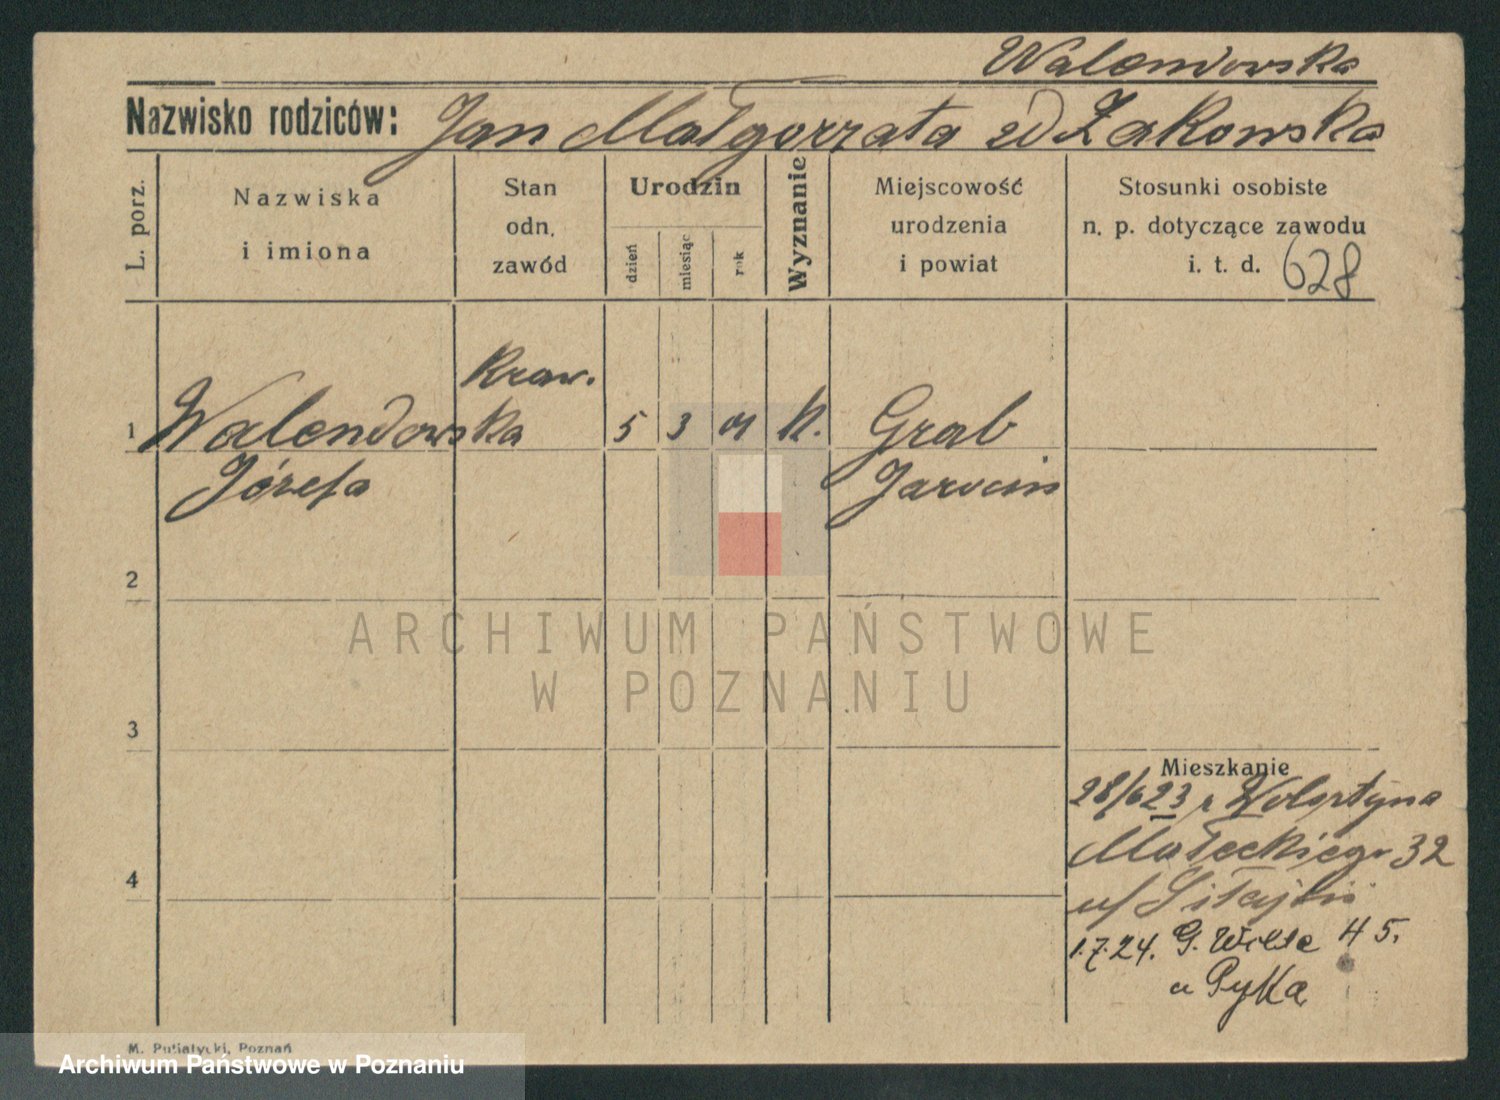 Walendowska
Nazwisko rodziców: Jan Małgorzata zd Żakowska
L. porz.
Nazwiska
i imiona
Stan
odn.
zawód
Urodzin
dzień
miesiąc
rok
Wyznanie
Miejscowość
urodzenia
i powiat
Stosunki osobiste
n. p. dotyczące zawodu
i. t. d. 628
1 Walendowska
Józefa
Kraw.
5 3 01 K. Grab
Jarocin
2
ARCHIWUM PAŃSTWOWE
W POZNANIU
3
Mieszkanie
28/6 23 z Wolsztyna
Małeckiego 32
4
1.7.24. G. Wilda 45.
a Pyłka
M. Putiatycki, Poznań
Archiwum Państwowe w Poznaniu